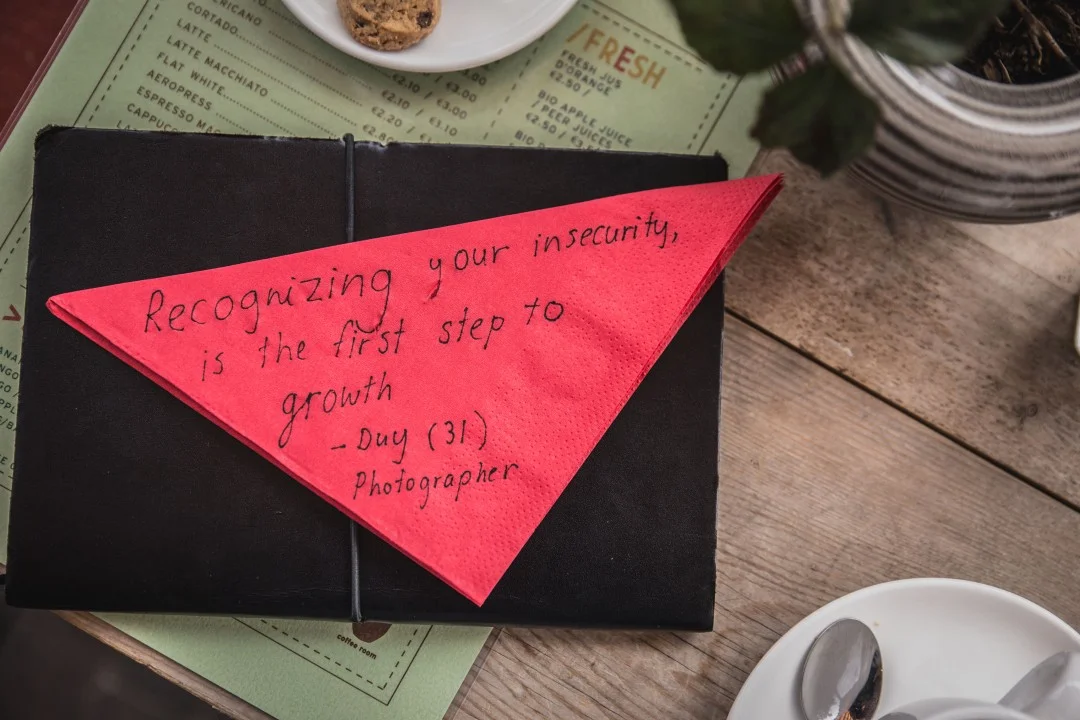 RICANO
CORTADO
LATTE
LATTE MACCHIATO
FLAT WHITE
AEROPRESS
ESPRESSO MAC
CAPPUCC
€2.10 / €3.00
€2.20 / €3.10
€2.80
/FRESH
FRESH JUS
D'ORANGE
€2.50 /
BIO APPLE JUICE
/ PEER JUICES
€2.50 /
BIO
Recognizing your insecurity,
is the first step to
growth
- Duy (31)
Photographer
coffee room